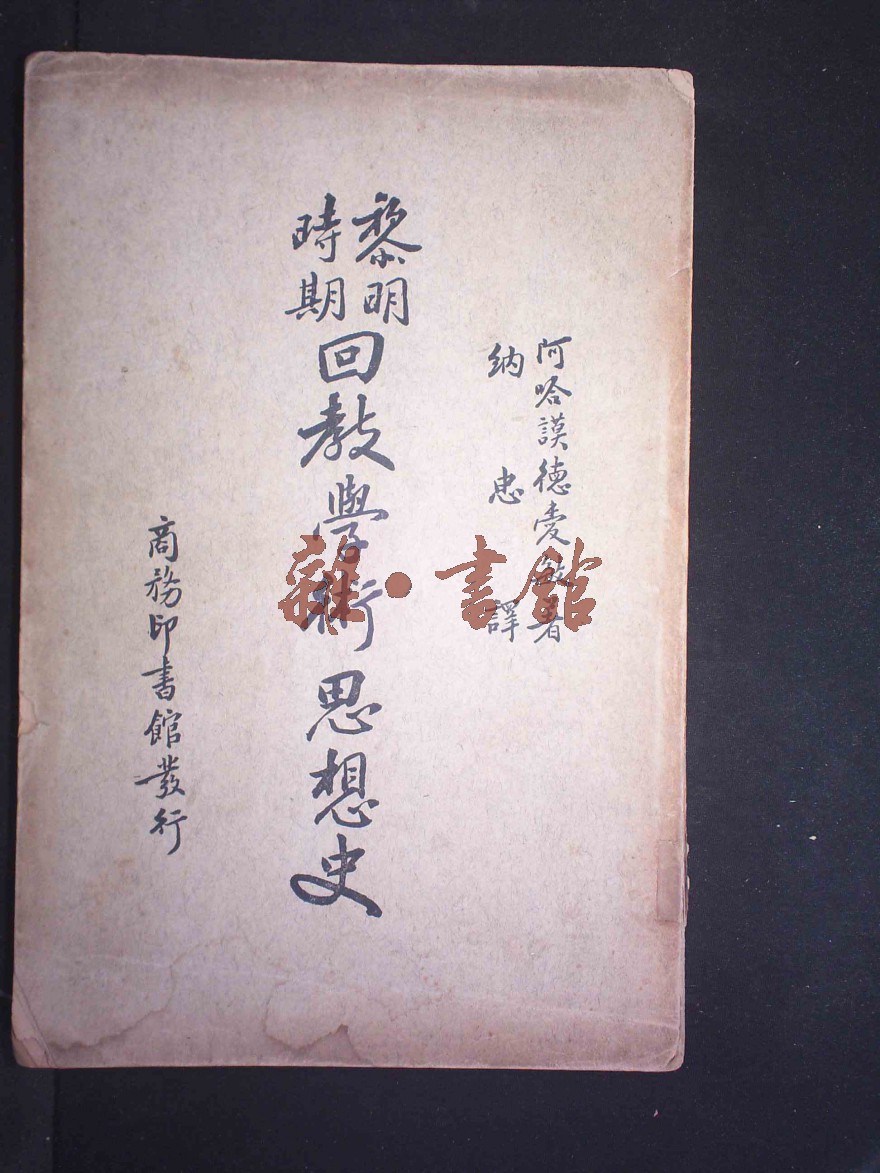 阿哈謨德愛敏著
納忠譯
黎明
時期
回教學術思想史
商務印書館發行
雜·書館